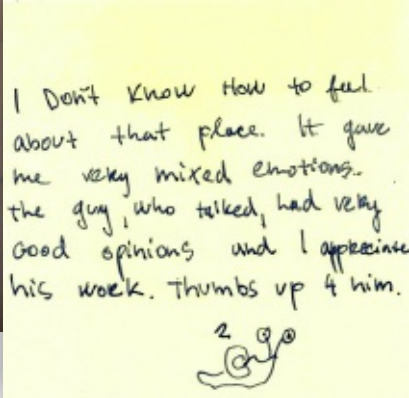 I Don't Know How to feel
about that place. It gave
me veky mixed emotions.
the guy, who talked, had veky
Good opinions and I appreciate
his work. Thumbs up 4 him.
2